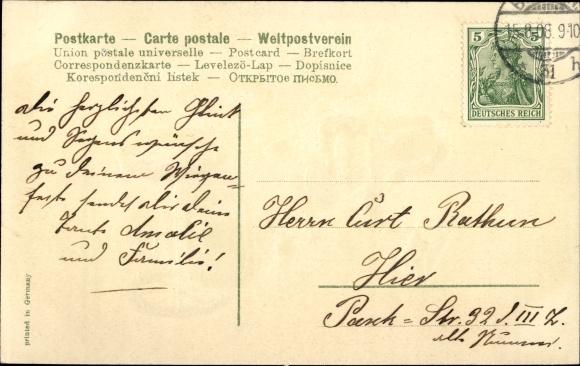 Postkarte — Carte postale — Weltpostverein
Union postale universelle — Postcard — Brefkort
Correspondenzkarte — Levelező-Lap — Dopisnice
Korespondenční lístek — Открытое письмо.
15.8.08. 9-10
51 h
5 5
DEUTSCHES REICH
die herzlichsten Glück
und Segenswünsche
zu Deinem Wiegen-
feste sendet dir deine
Tante Amalie
und Familie!
Herrn Curt Rathun
Hier
Park-Str. 32 I. III Z.
alte Nummer.
printed in Germany